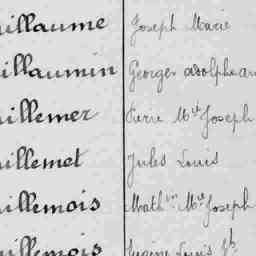 uillaume Joseph Marie
uillaumin Georges adolphe au
uillemer Pierre Mie Joseph
uillemet Jules Louis
uillemois Math in Mie Joseph
uillemois Eugène Louis Jh